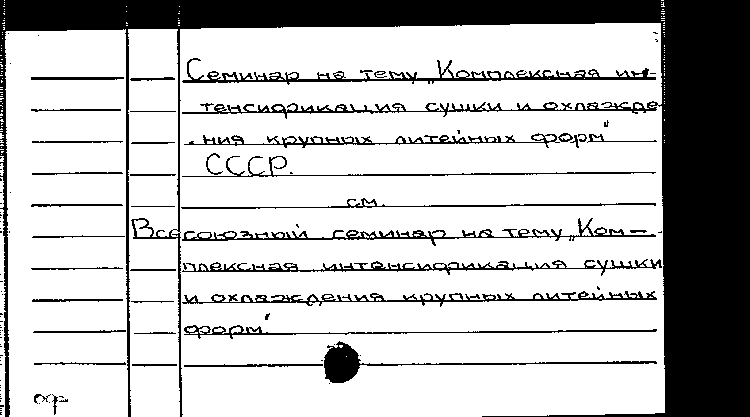 Семинар на тему „Комплексная ин-
тенсификация сушки и охлажде-
ния крупных литейных форм"
СССР.
см.
Всесоюзный семинар на тему „Ком-
плексная интенсификация сушки
и охлаждения крупных литейных
форм".